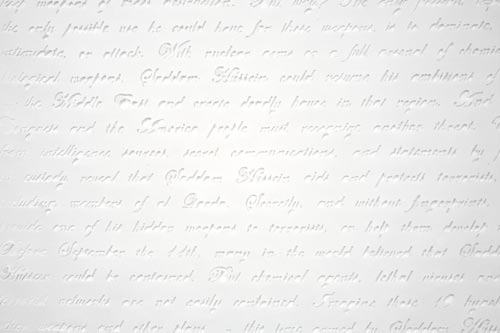 weapons of mass destruction. But why? The only possible
the only possible use he could have for these weapons, is to dominate,
intimidate, or attack. With nuclear arms or a full arsenal of chemic
biological weapons, Saddam Hussein could resume his ambitions of
the Middle East and create deadly havoc in that region. And
Congress and the America people must recognize another threat.
from intelligence sources, secret communications, and statements by
custody, reveal that Saddam Hussein aids and protects terrorists,
including members of al Qaeda. Secretly, and without fingerprints,
provide one of his hidden weapons to terrorists, or help them develop
Before September the 11th, many in the world believed that Sadd
Hussein could be contained. But chemical agents, lethal viruses and
networks are not easily contained. Imagine those 19
weapons and other plans - this time armed by Saddam